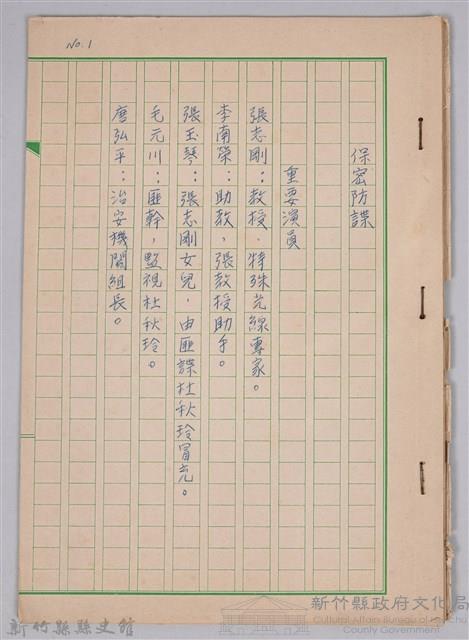 No. 1
保密防諜
重要演員
張志剛：教授，特殊光線專家。
李南榮：助教，張教授助手。
張玉琴：張志剛女兒，由匪諜杜秋玲冒充。
毛元川：匪幹，監視杜秋玲。
唐弘平：治安機關組長。
新竹縣縣史館
新竹縣政府文化局
Cultural Affairs Bureau of Hsinchu
County Government